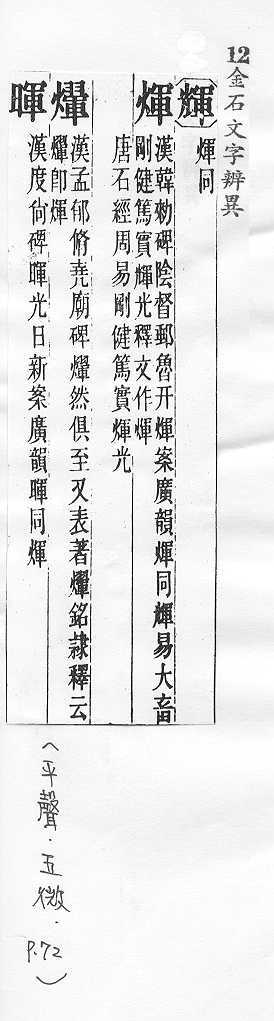 12金石文字辨異
輝
煇同
煇
漢韓勑碑陰督郵魯开煇案廣韻煇同輝易大畜
剛健篤實輝光釋文作煇
唐石經周易剛健篤實煇光
㷸
漢孟郁脩堯廟碑㷸然俱至又表著㷸銘隸釋云
㷸即煇
暉
漢度尚碑暉光日新案廣韻暉同煇
(平聲.五微.
P.72)